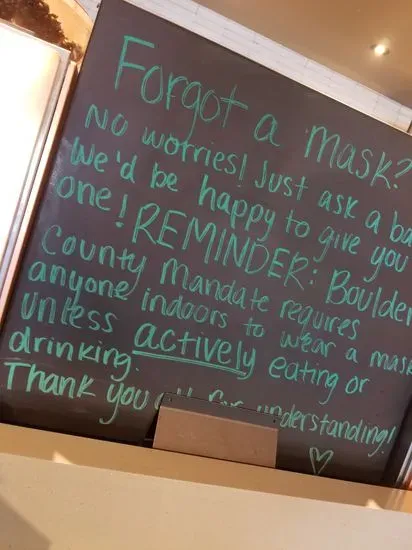 Forgot a mask?
No worries! Just ask a ba
We'd be happy to give you
one! REMINDER: Boulder
County Mandate requires
anyone indoors to wear a mask
unless actively eating or
drinking.
Thank you all for understanding!
♡